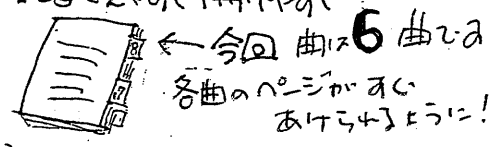 今回 曲は6曲です
各曲のページがすぐ
あけられるように!